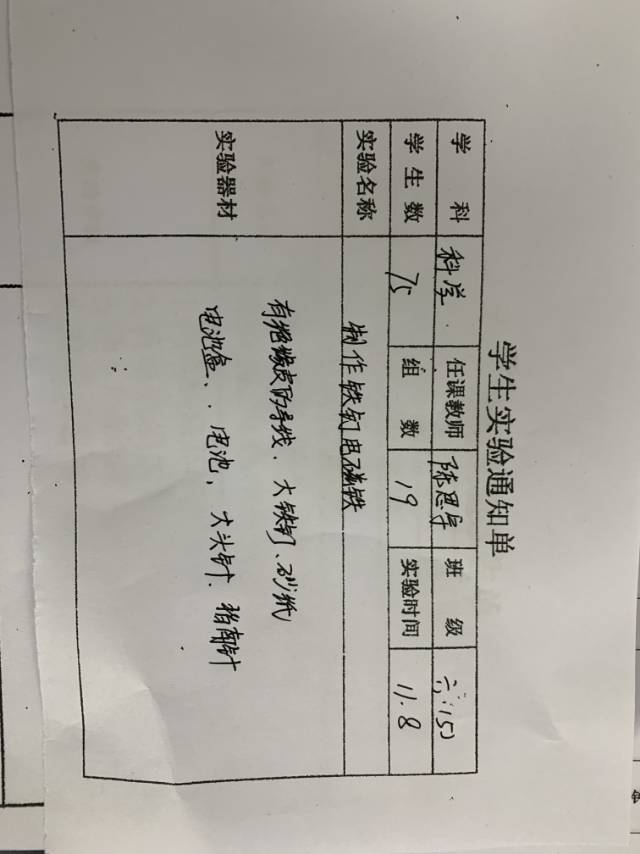 学生实验通知单
学 科 科学 任课教师 陈思宇 班 级 六(5)
学生数 75 组 数 19 实验时间 11.8
实验名称 制作铁钉电磁铁
实验器材 有绝缘皮的导线、大铁钉、砂纸
电池盒、电池、大头针、指南针